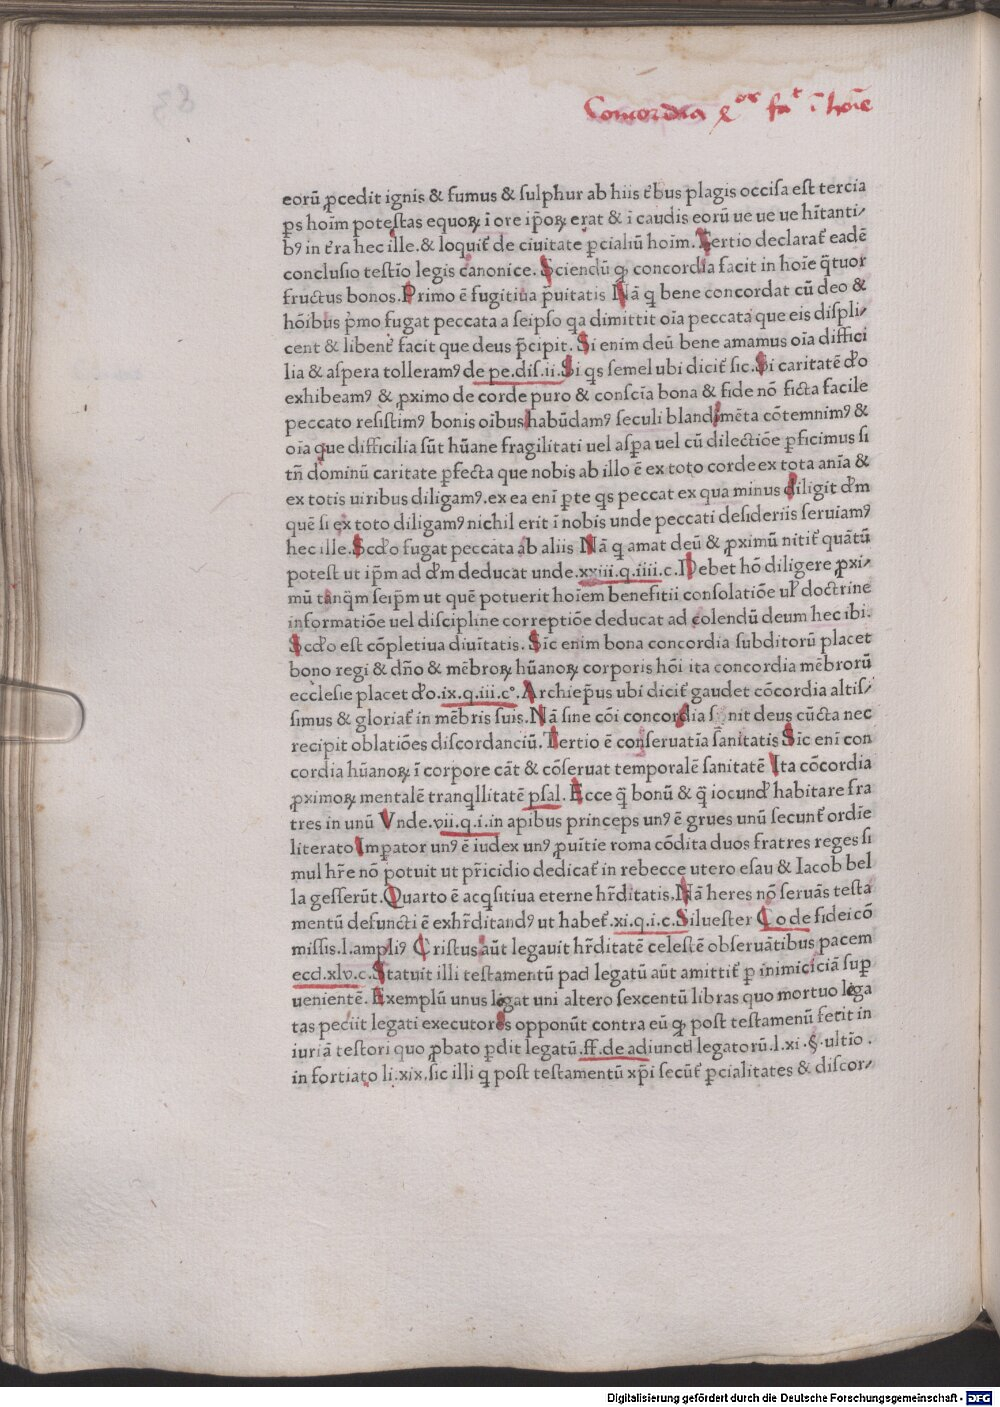 Concordia qͦʳ faᵗ ī hoīe
eorū ꝓcedit ignis & fumus & sulphur ab hiis t̄bus plagis occisa est tercia
ꝑs hoīm potestas equoꝝ ī ore ip̄oꝝ erat & ī caudis eorū ue ue ue hītanti⸗
bꝰ in t̄ra hec ille. & loquit᷑ de ciuitate ꝑcialiū hoīm. Tertio declarat᷑ eadē
conclusio testīo legis canonice. Sciendū ꝙ concordia facit in hoīe q̄tuor
fructus bonos. Primo ē fugitiua p̄uitatis Nā q̄ bene concordat cū deo &
hōibus p̄mo fugat peccata a seipso qa dimittit oīa peccata que eis displi⸗
cent & libent᷑ facit que deus p̄cipit. Si enim deū bene amamus oīa diffici
lia & aspera tolleramꝰ de pe. dis. ii. Si qs semel ubi dicit᷑ sic. Si caritatē do
exhibeamꝰ & ꝓximo de corde puro & conscīa bona & fide nō ficta facile
peccato resistimꝰ bonis oībus habūdamꝰ seculi blandimēta cōtemnimꝰ &
oīa que difficilia sūt hūane fragilitati uel asꝑa uel cū dilectiōe ꝑficimus si
tn̄ dominū caritate ꝑfecta que nobis ab illo ē ex toto corde ex tota anīa &
ex totis uiribus diligamꝰ. ex ea enī ꝑte qs peccat ex qua minus diligit dm
quē si ex toto diligamꝰ nichil erit ī nobis unde peccati desideriis seruiamꝰ
hec ille. Scdo fugat peccata ab aliis Nā q̄ amat deū & ꝓximū nitit᷑ quātū
potest ut ip̄m ad dm deducat unde. xxiii. q. iiii. c. Debet hō diligere ꝓxi⸗
mū tanq̄m seip̄m ut quē potuerit hoīem benefitii consolatiōe ul̓ doctrine
informatiōe uel discipline correptiōe deducat ad colendū deum hec ibi.
Scdo est cōpletiua diuītatis. Sic enim bona concordia subditorū placet
bono regi & dn̄o & mēbroꝝ hūanoꝝ corporis hōi ita concordia mēbrorū
ecclesie placet do. ix. q. iii. c°. Archiep̄us ubi dicit᷑ gaudet cōcordia altis⸗
simus & gloriat᷑ in mēbris suis. Nā sine cōi concordia nit deus cūcta nec
recipit oblatiōes discordanciū. Tertio ē conseruatīa sanitatis Sic enī con
cordia hūanoꝝ ī corpore cāt & cōseruat temporalē sanitatē Ita cōcordia
ꝓximoꝝ mentalē tranqllitatē psal. Ecce q̄ bonū & q̄ iocund habitare fra
tres in unū Vnde. vii. q. i. in apibus princeps unꝰ ē grues unū secunt᷑ ordīe
literato Imꝑator unꝰ ē iudex unꝰ ꝓuītie roma cōdita duos fratres reges si
mul hr̄e nō potuit ut pr̄icidio dedicat᷑ in rebecce utero esau & Iacob bel
la gesserūt. Quarto ē acqsitiua eterne hr̄ditatis. Nā heres nō seruās testa
mentū defuncti ē exhr̄ditandꝰ ut habet᷑. xi. q. i. c. Siluester Co de fidei cō
missis. l. ampliꝰ Cristus aūt legauit hr̄ditatē celestē obseruātibus pacem
eccl. xlv. c. Statuit illi testamentū pad legatū aūt amittit᷑ ꝑ inimiciciā suꝑ
uenientē. Exemplū unus legat uni altero sexcentū libras quo mortuo lega
tas peciit legati executores opponūt contra eū ꝙ post testamenū fecit in
iuriā testori quo ꝓbato ꝑdit legatū. ff. de adiunctl legatorū. l. xi. §. ultīo.
in fortiato li. xix. sic illi q̄ post testamentū xp̄i secūt᷑ ꝑcialitates & discor⸗
Digitalisierung gefördert durch die Deutsche Forschungsgemeinschaft - DFG